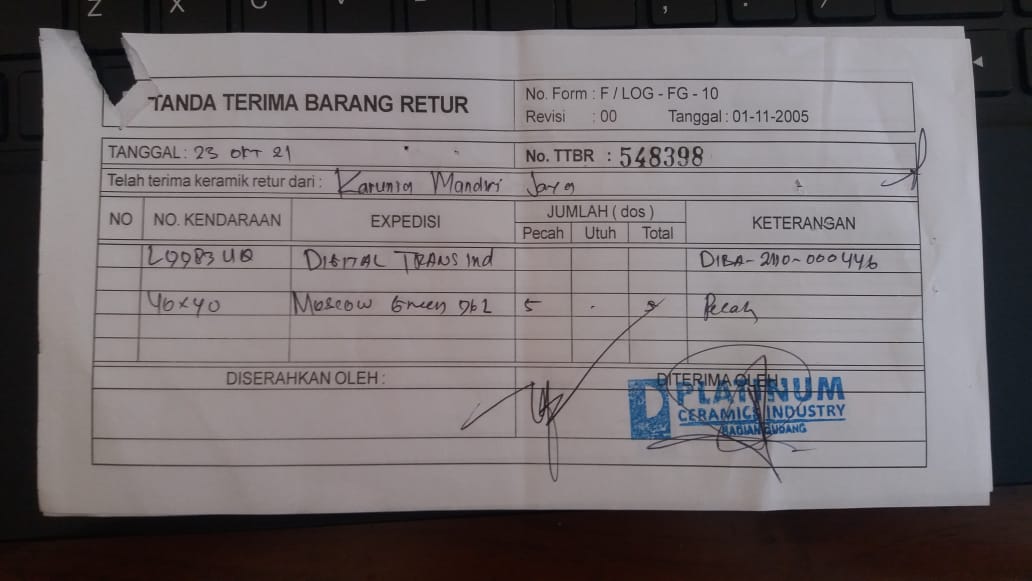 TANDA TERIMA BARANG RETUR
No. Form : F / LOG - FG - 10
Revisi : 00 Tanggal : 01-11-2005
TANGGAL : 23 OKT 21
No. TTBR : 548398
Telah terima keramik retur dari : Karunia Mandiri Jaya
NO NO. KENDARAAN EXPEDISI JUMLAH ( dos ) KETERANGAN
Pecah Utuh Total
L9983UQ DIGITAL TRANS Ind DIBA-2110-000446
40x40 Moscow Green Db2 5 - 5 Pecah
DISERAHKAN OLEH :
DITERIMA OLEH
PLATINUM
CERAMICS INDUSTRY
BAGIAN GUDANG
Z X C